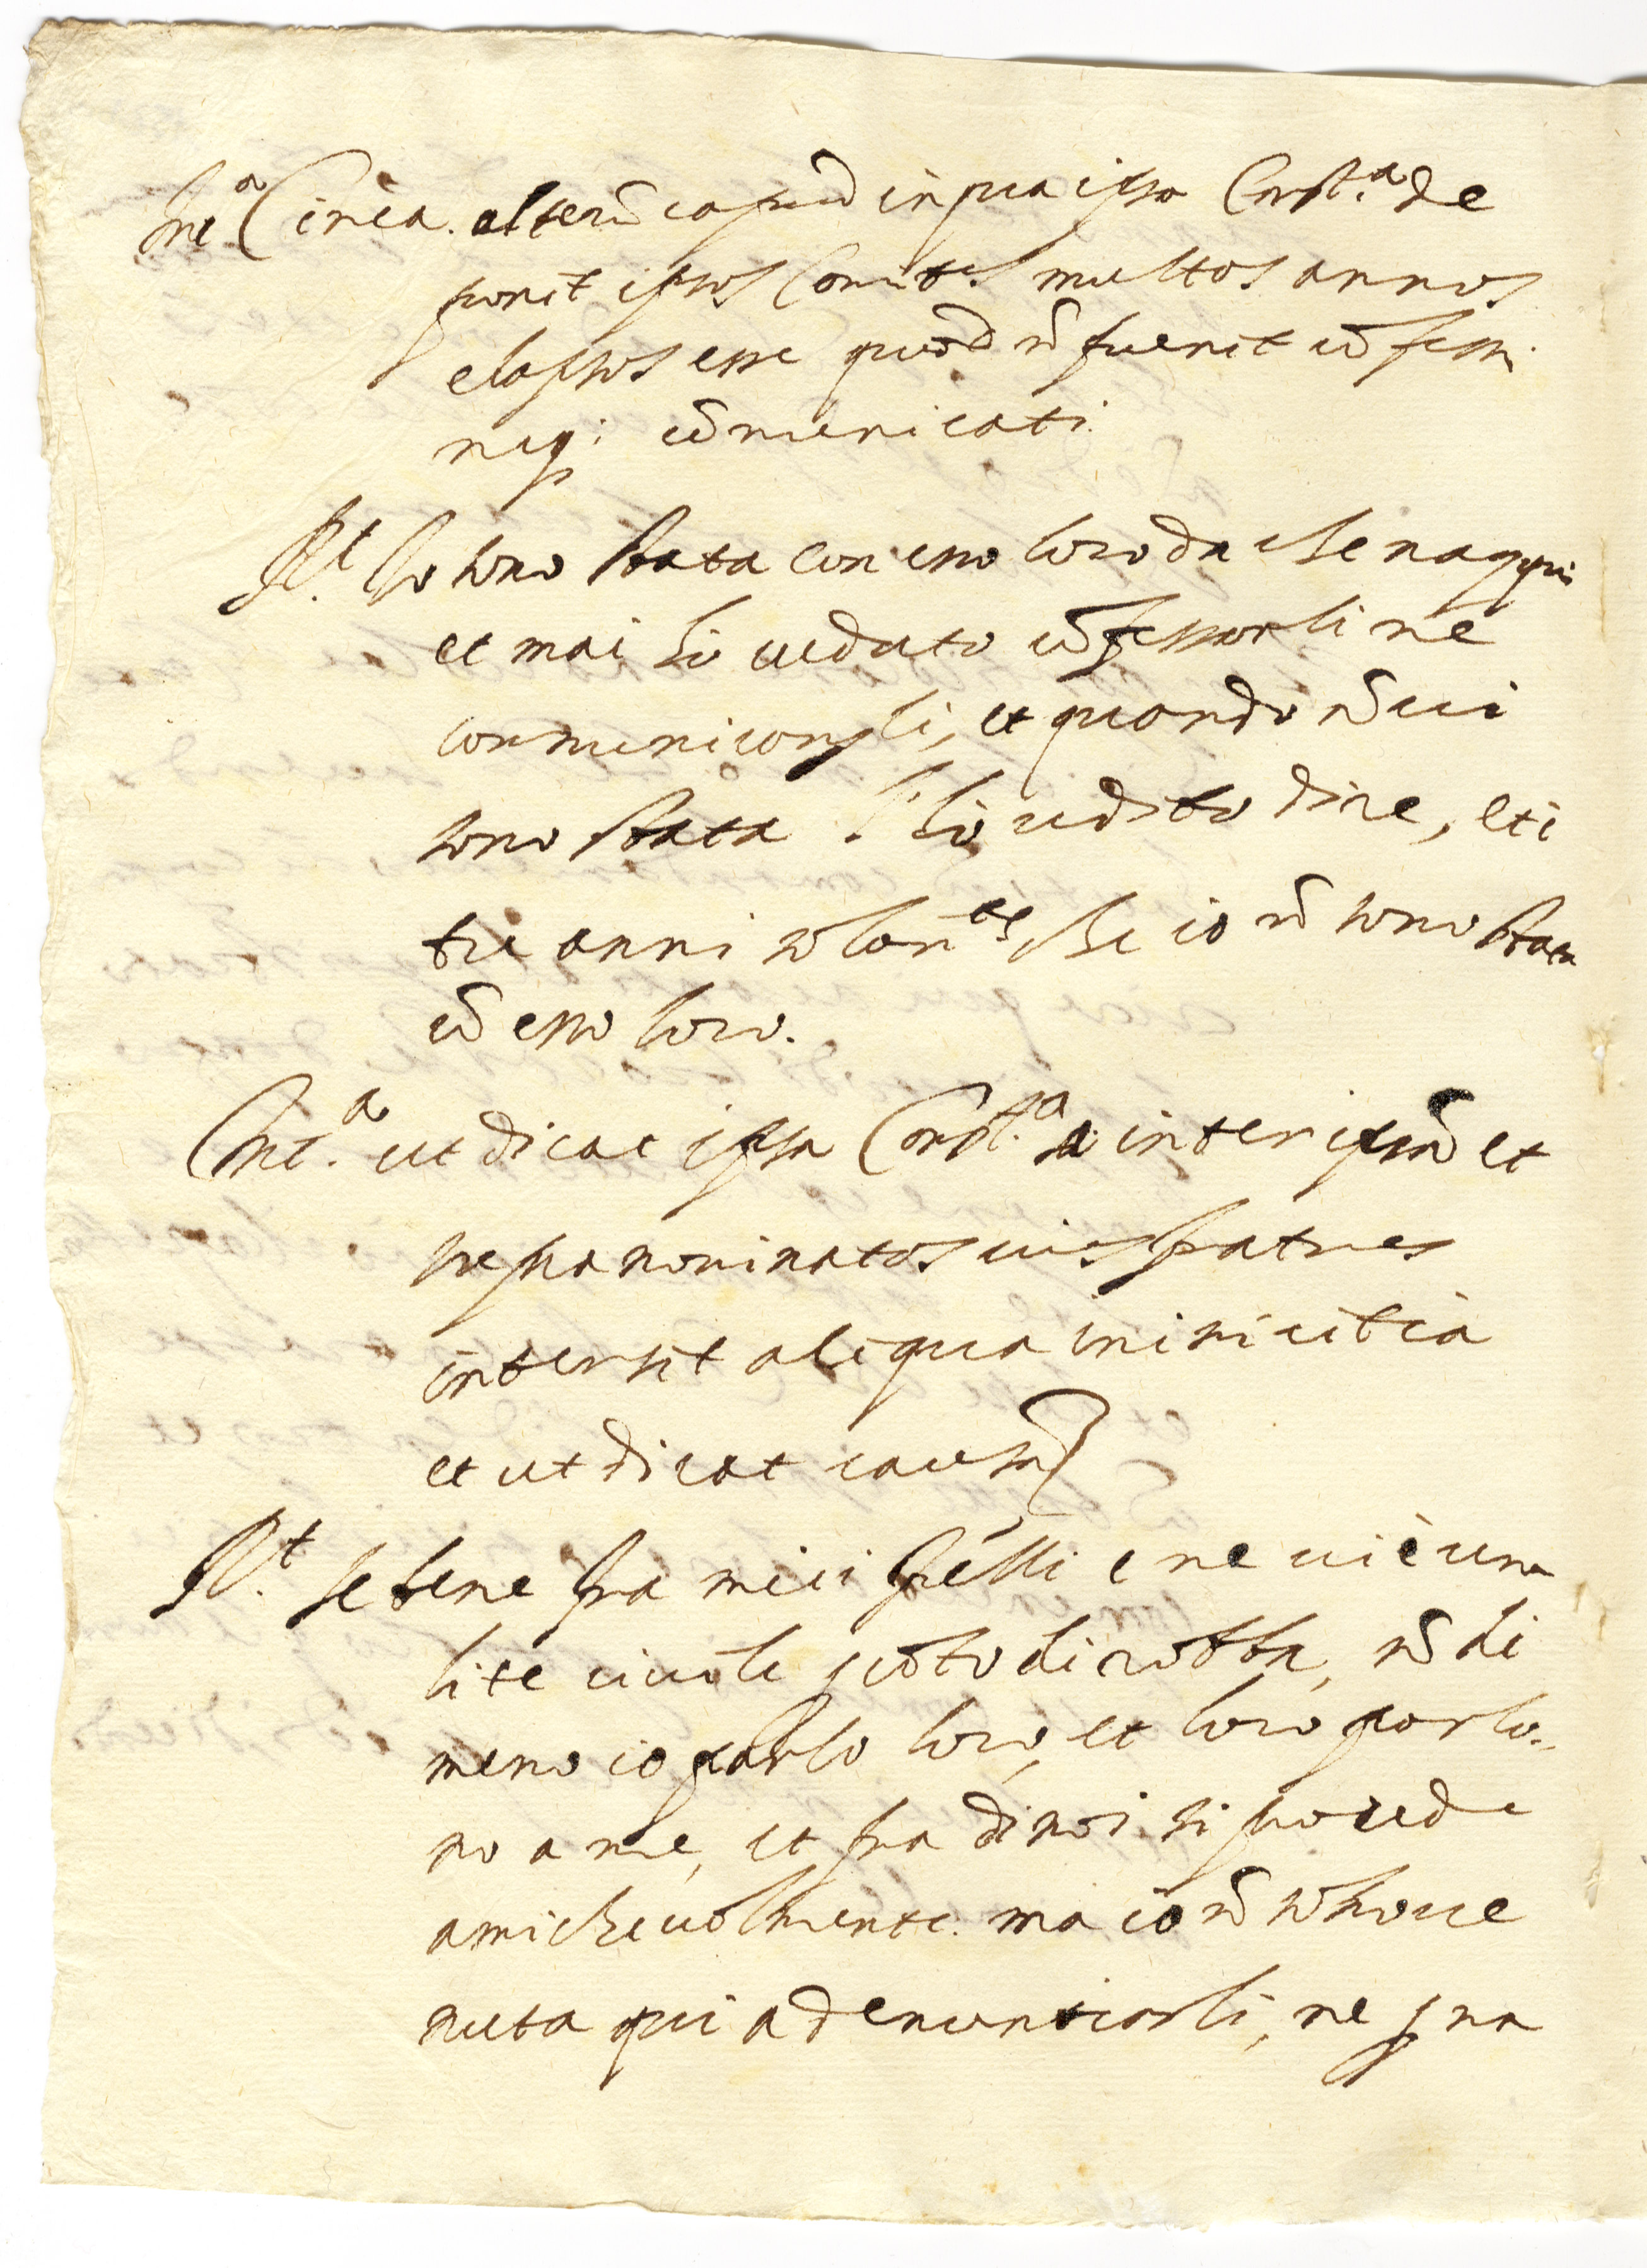 Int.a Circa alterũ caput in qua ipsa Const.a de
ponit ipsos Comites multos annos
elapsos esse quod nõ fuerit cõfessi
neq; cõmunicati
R.t Io sono stata con esso loro da che nacqui
et mai hò veduto cõfessarli ne
communicarsli, et quando nõ vi
sono stata l'hò udito dire, et i
tre anni solam.te che io nõ sono stata
cõ esso loro.
Int.a ut dicat ipsa Const.a a inter ipsã et
supranominatos eius fratres
intersit aliqua inimicitia
et ut dicat causã
R.t Se bene fra miei frẽlli e me vi è una
lite civile p cõto di robba, nõ di
meno io parlo loro, et loro parla-
no a me, et fra di noi si procede
amichevolmente. ma io nõ sõ
nuta qui a denuntiarli, ne p na